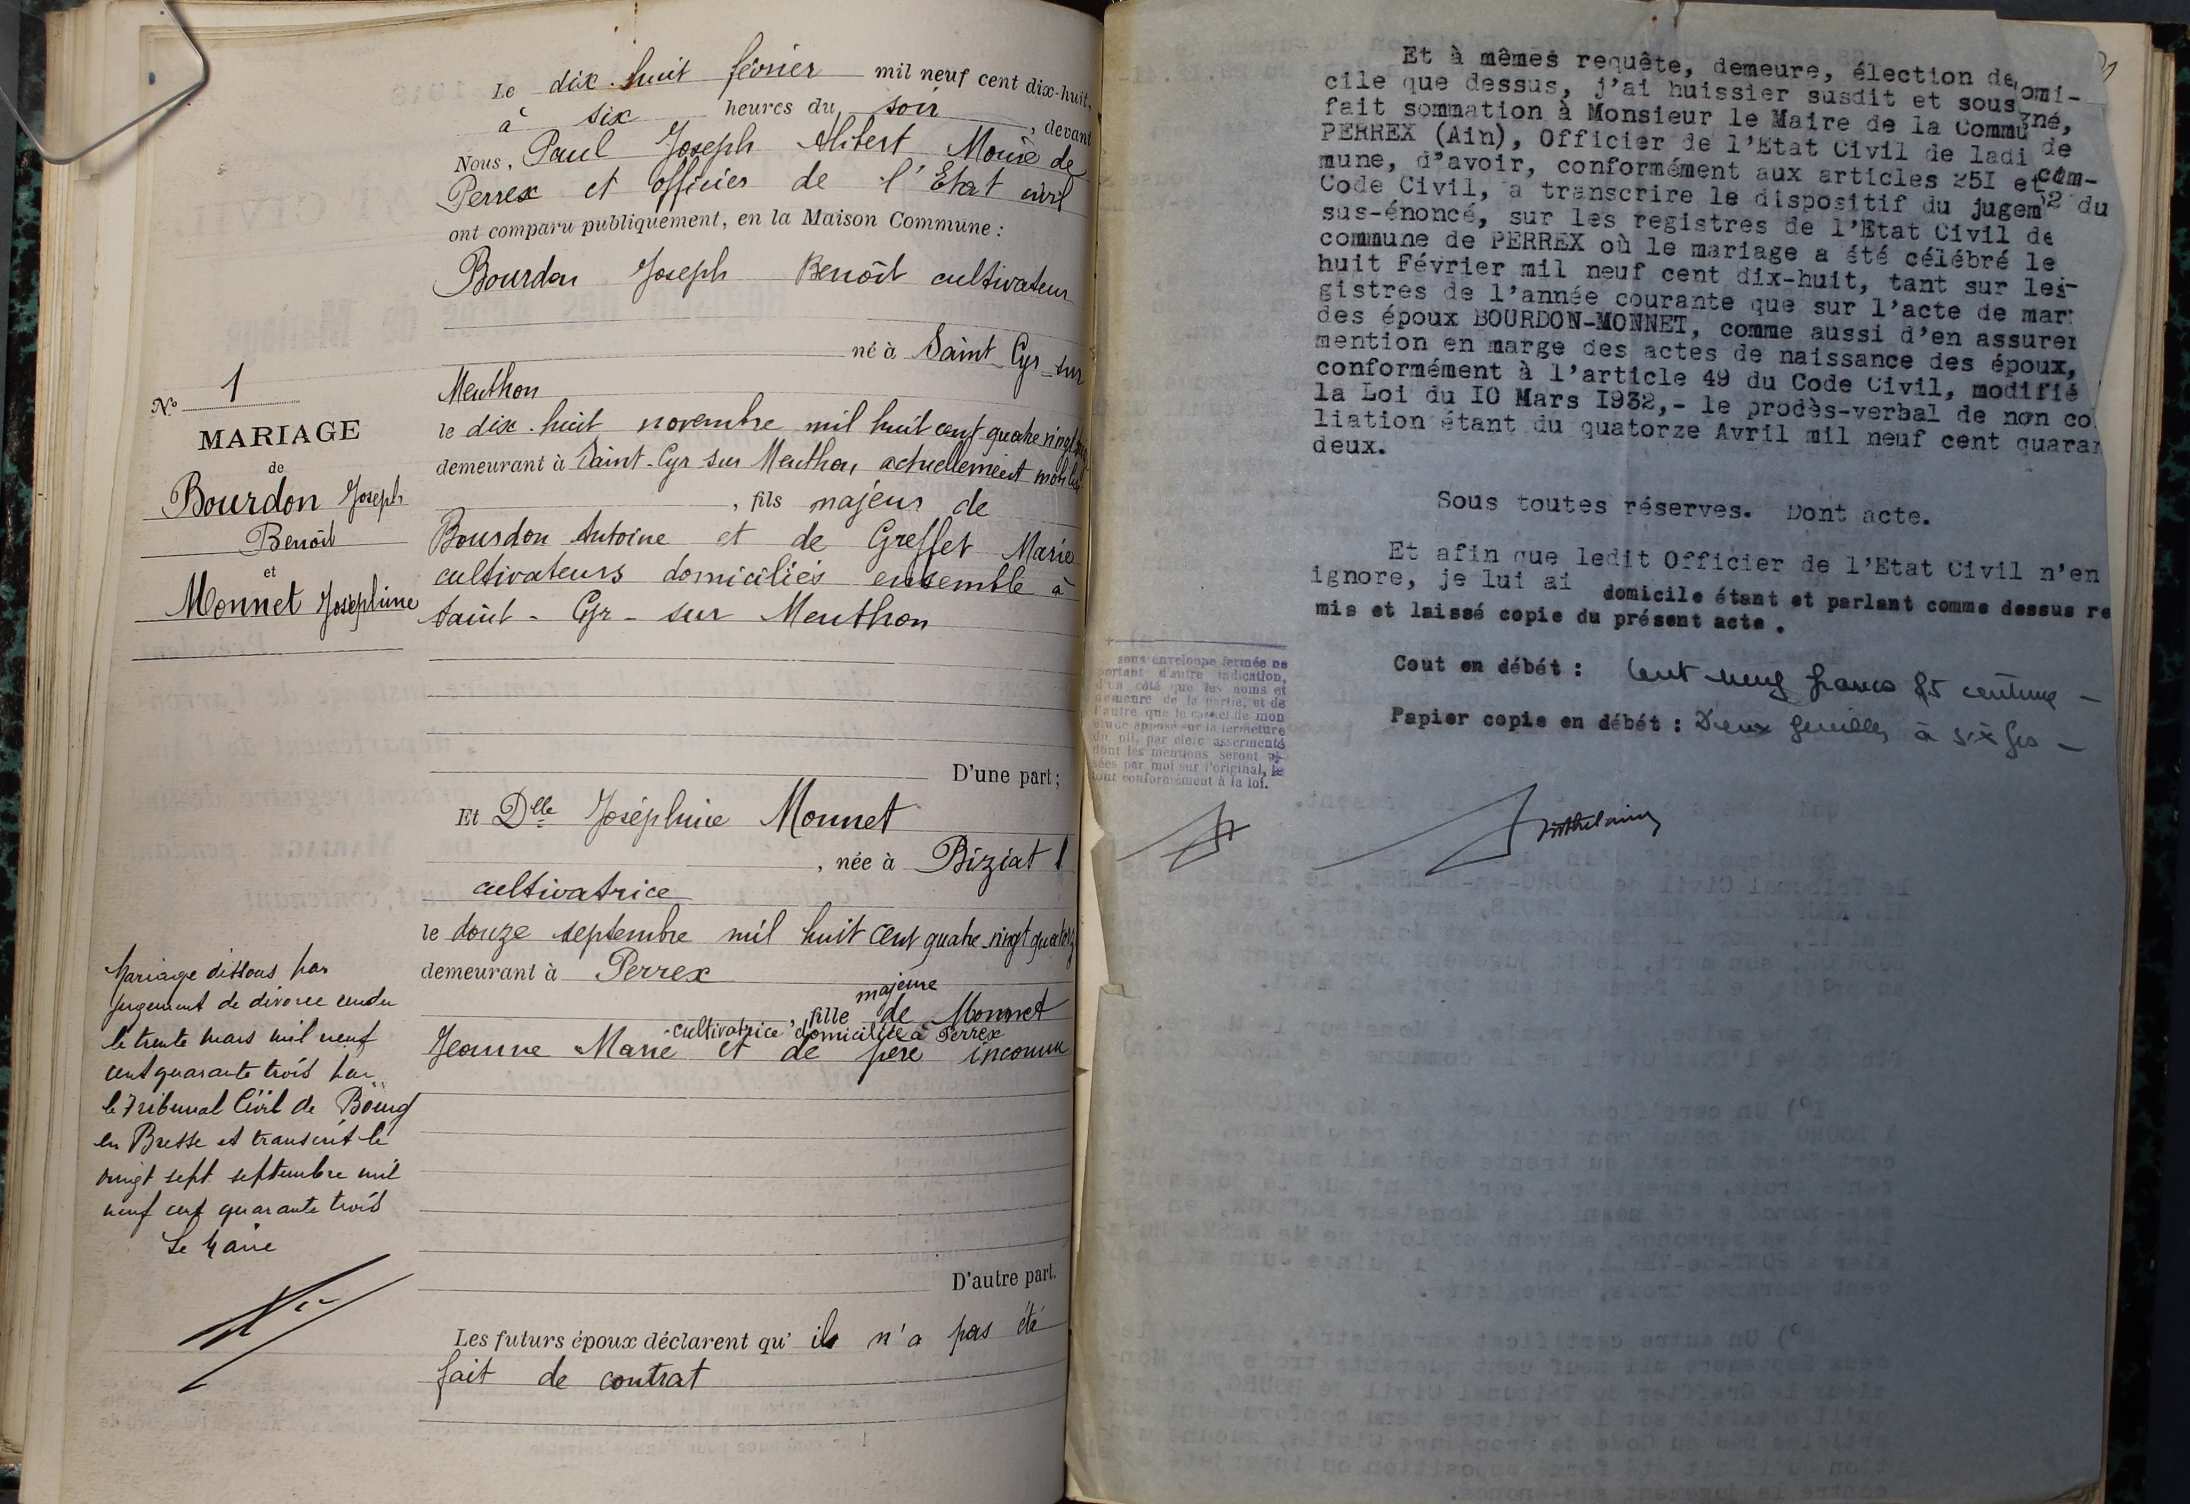 Le dix-huit février mil neuf cent dix-huit,
à six heures du soir, devant
Nous, Paul Joseph Alibert Maire de
Perrex et officier de l'Etat civil
ont comparu publiquement, en la Maison Commune :
Bourdon Joseph Benoît cultivateur
né à Saint-Cyr-sur
Menthon
le dix-huit novembre mil huit cent quatre vingt
demeurant à Saint-Cyr sur Menthon actuellement
, fils majeur de
Bourdon Antoine et de Greffet Marie
cultivateurs domiciliés ensemble à
Saint-Cyr-sur Menthon
D'une part ;
Et Dlle Joséphine Monnet
, née à Biziat
cultivatrice
le douze septembre mil huit cent quatre-vingt quatorze
demeurant à Perrex
majeure
, fille de Monnet
cultivatrice domiciliée à Perrex
Jeanne Marie et de père inconnu
D'autre part.
Les futurs époux déclarent qu'il n'a pas été
fait de contrat
N° 1
MARIAGE
de
Bourdon Joseph
Benoît
et
Monnet Joséphine
Mariage dissous par
jugement de divorce rendu
le trente mars mil neuf
cent quarante trois par
le Tribunal Civil de Bourg
en Bresse et transcrit le
vingt sept septembre mil
neuf cent quarante trois
Le Maire
Et à mêmes requête, demeure, élection de omi-
cile que dessus, j'ai huissier susdit et sous né,
fait sommation à Monsieur le Maire de la Commu de
PERREX (Ain), Officier de l'Etat Civil de ladi com-
mune, d'avoir, conformément aux articles 251 et 2 du
Code Civil, à transcrire le dispositif du jugem
sus-énoncé, sur les registres de l'Etat Civil de
commune de PERREX où le mariage a été célébré le
huit Février mil neuf cent dix-huit, tant sur les
gistres de l'année courante que sur l'acte de mar
des époux BOURDON-MONNET, comme aussi d'en assurer
mention en marge des actes de naissance des époux,
conformément à l'article 49 du Code Civil, modifié
la Loi du 10 Mars 1932,- le prodès-verbal de non co
liation étant du quatorze Avril mil neuf cent quaran
deux.
Sous toutes réserves. Dont acte.
Et afin que ledit Officier de l'Etat Civil n'en
ignore, je lui ai domicile étant et parlant comme dessus re
mis et laissé copie du présent acte.
Cout en débét : Cent neuf francs 85 centimes -
Papier copie en débét : Deux feuilles à six frs -
sous enveloppe fermée ne
portant d'autre indication,
d'un côté que les noms et
demeure de la partie, et de
l'autre que le cachet de mon
étude apposé sur la fermeture
du pli, par clerc assermenté
dont les mentions seront vi-
sées par moi sur l'original, le
tout conformément à la loi.